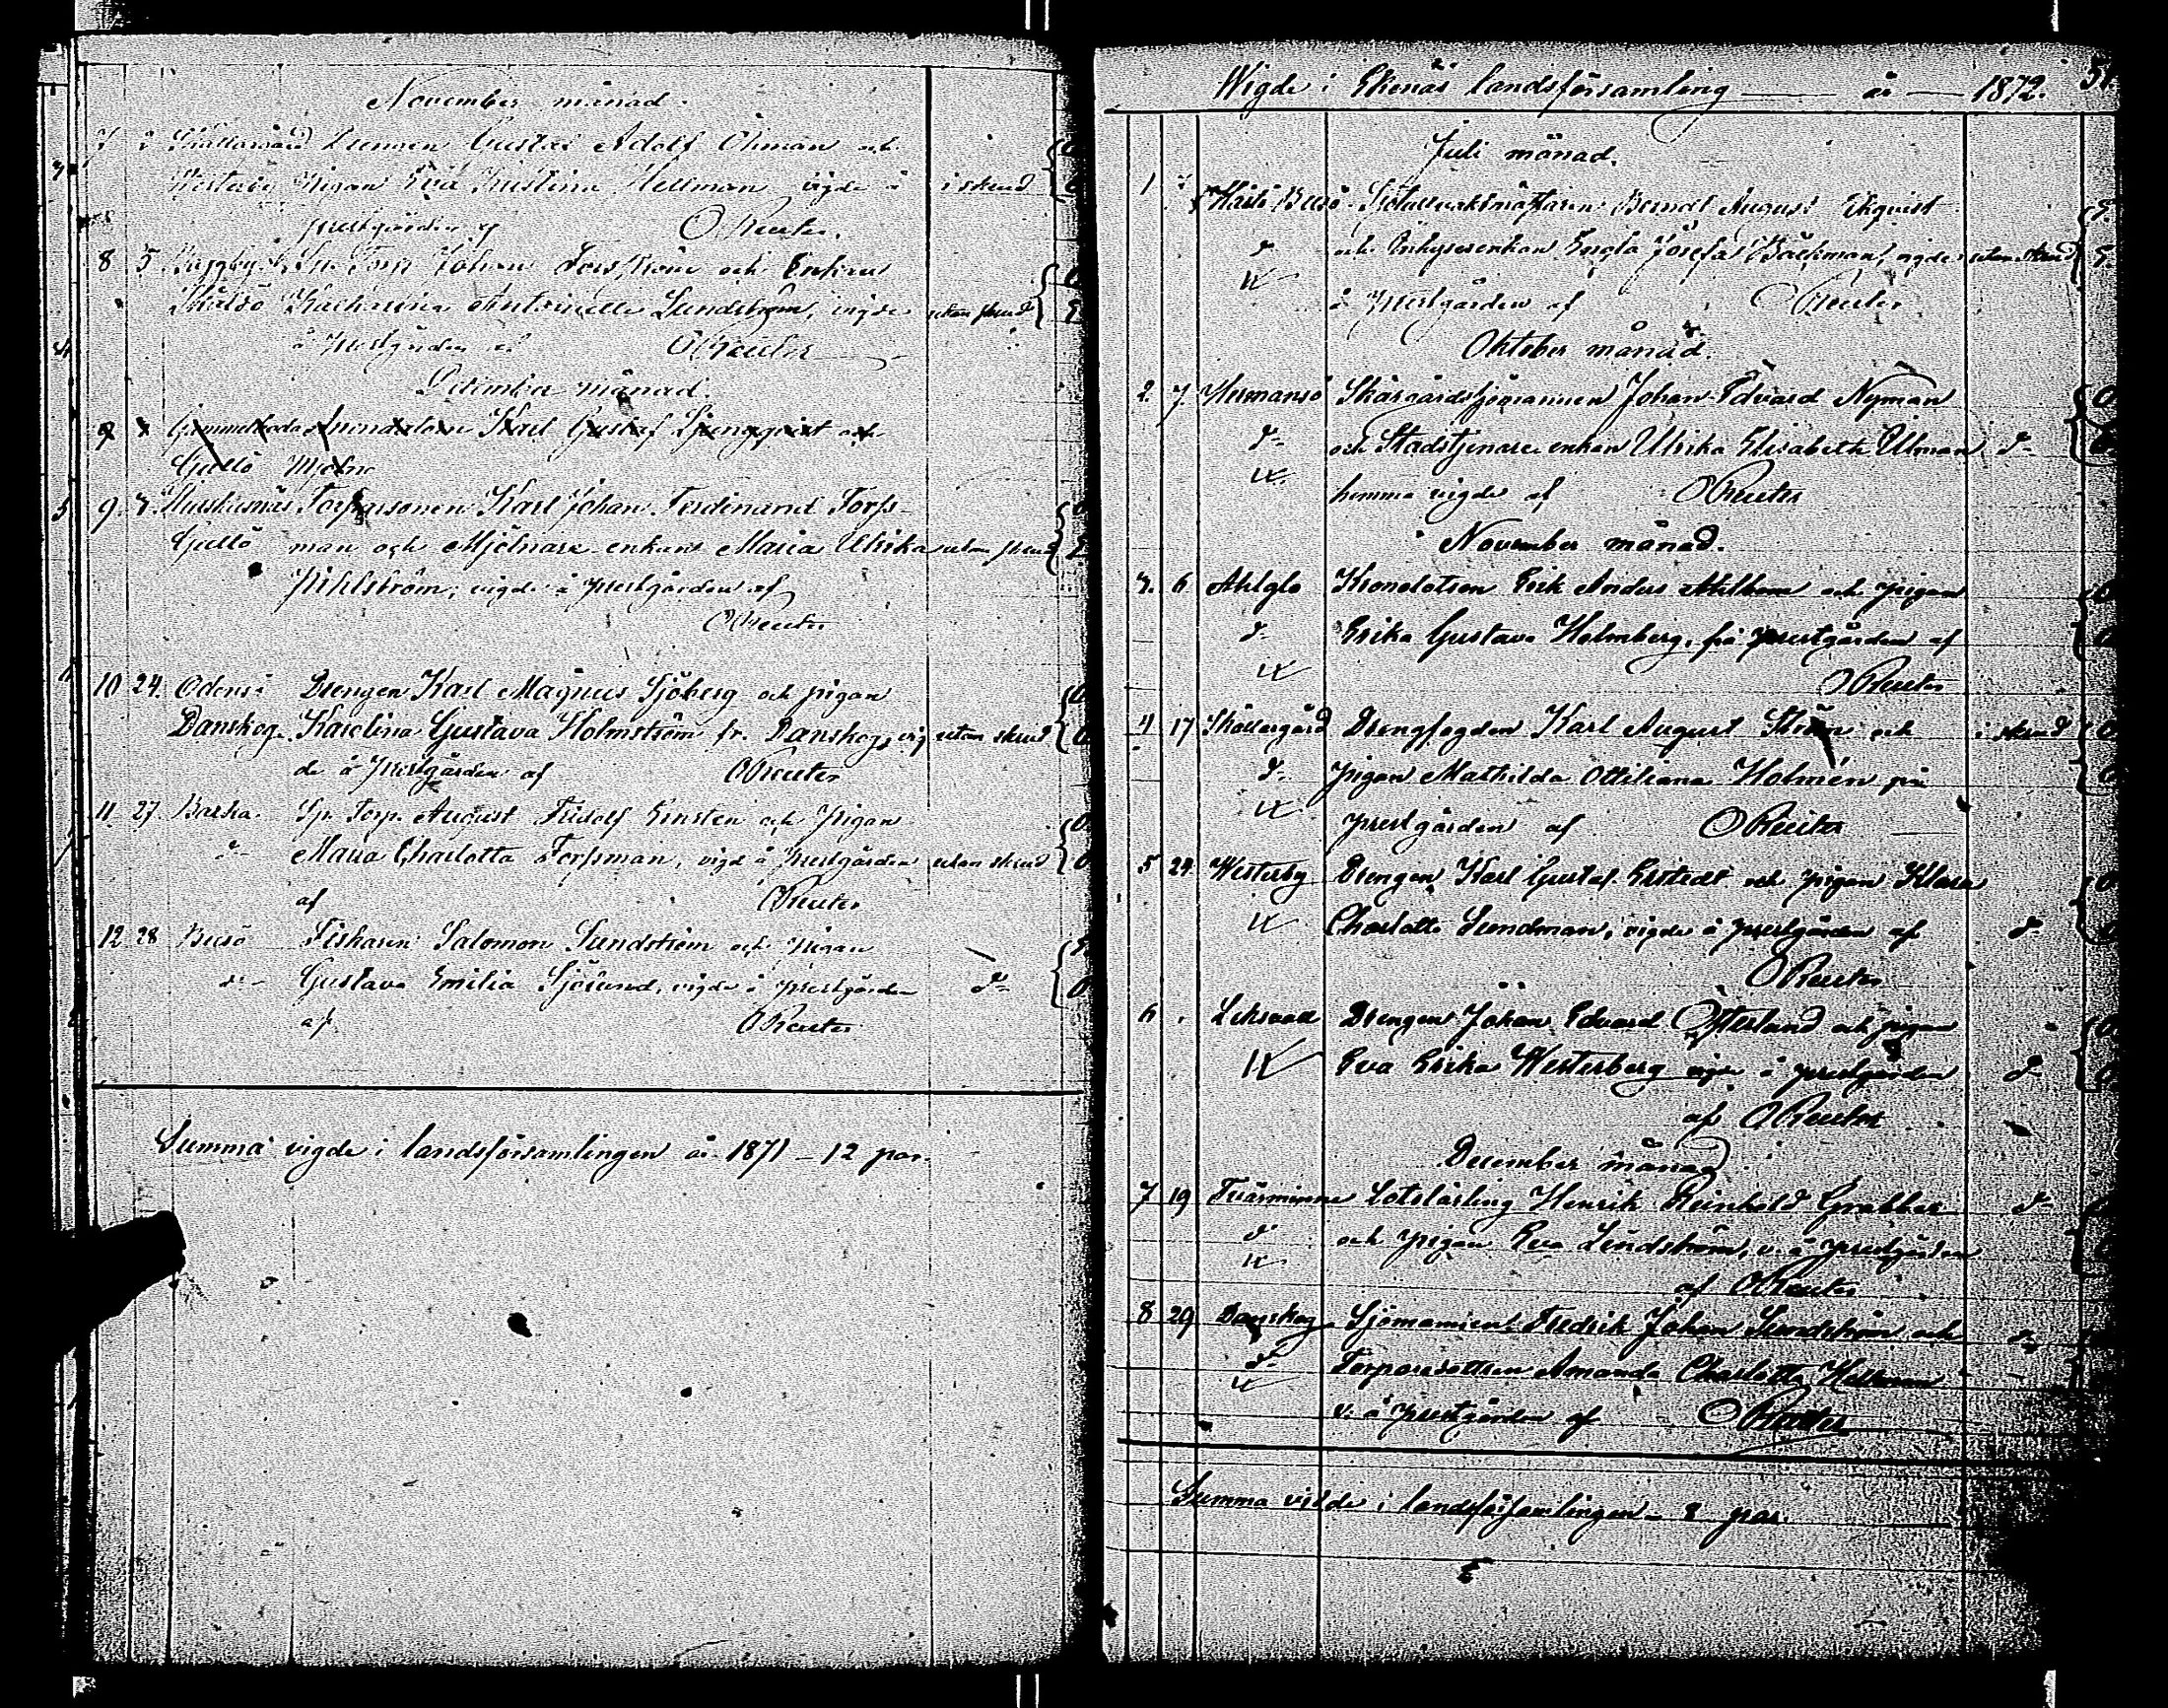 November månad.
7 2 Skållargård Drengen Gustaf Adolf Öhman och
Westerby Pigan Eva Kristina Hellman vigde å i skrud
prestgården af O Reuter.
8 5 Sp. Torp. Johan Forsström och Enkan
Skåldö Katharina Antoinette Lundström, vigde utan skrud
å prestgården af O Reuter
December månad.
9 Gammelboda Kronolotsen Karl Gustaf Ljungqvist och
Gullö Mjölna
9. Torparsonen Karl Johan Ferdinand Forss-
Gullö man och Mjölnare-enkan Maria Ulrika utan skrud
Pihlström, vigde å prestgården af
O Reuter
10 24. Odensö Drengen Karl Magnus Sjöberg och pigan
Danskog. Karolina Gustava Holmström fr. Danskog, vig utan skrud
de å prestgården af O Reuter
11. 27. Baska Sp. Torp. August Fridolf Ginsten och Pigan
d:o Maria Charlotta Forssman, vigd å prestgården utan skrud
af O Reuter
12 28 Busö Fiskaren Salomon Sundström och pigan
d:o Gustava Emilia Sjölund, vigde å prestgården d:o
af O Reuter
Summa vigde i landsförsamlingen år 1871 – 12 par.
Wigde i Ekenäs landsförsamling år 1872. 51
Juli månad.
1 Hästö Busö Berndt August Ekqvist
d och Inhysesenkan Josefa Bäckman, vigde utan skrud
å prestgården af O Reuter
Oktober månad.
2. 7. Hermansö Skärgårdssjömannen Johan Edvard Nyman
d:o och Stadstjenare enkan Ulrika Elisabeth Ulman d:o
hemma vigde af O Reuter
November månad.
3. 6 Ahlglo Kronolotsen Erik Anders Ahlbom och pigan
d:o Erika Gustava Holmberg, på prestgården af
O Reuter
4 17 Skållargård Drengfogden Karl August Ström och i skrud
d:o pigan Mathilda Ottiliana Holmén på
prestgården af O Reuter
5 24 Westerby Drengen Karl Gustaf Erstedt och pigan Klara
Charlotta Sundman, vigde å prestgården af d:o
O Reuter
6 Leksvall Drengen Johan Edvard Österlund och pigan
Eva Erika Westerberg vigde å prestgården d:o
af O Reuter
December månad.
7 19 Tvärminne Lotslärling Henrik Reinhold Grabber d:o
d och pigan Eva Lindström, v. å prestgården
af O Reuter
8 29 Danskog Sjömannen Fredrik Johan Sundström och d:o
d:o Torparedottren Amanda Charlotta Hellman
v. å prestgården af O Reuter
Summa vigde i landsförsamlingen – 8 par.